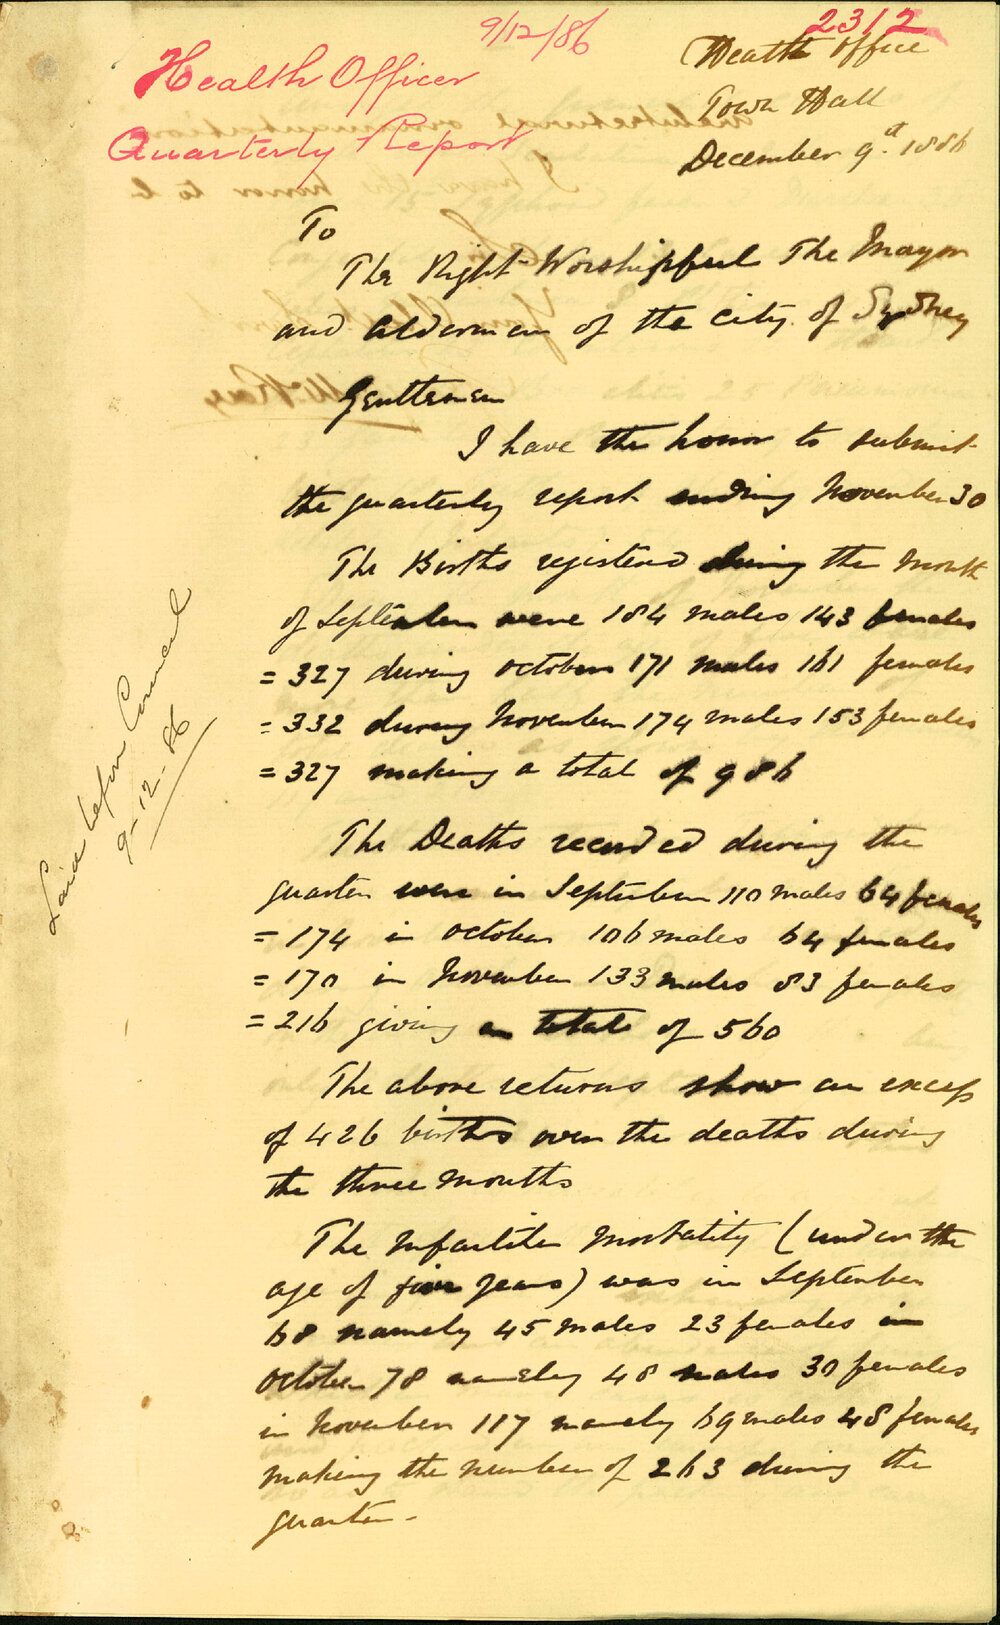 9/12/86
2312
Health Officer
Quarterly Report
Health Office
Town Hall
December 9th 1886
To
The Right Worshipful The Mayor
and Aldermen of the city of Sydney
Gentlemen
I have the honor to submit
the quarterly report ending November 30
The Births registered during the month
of September were 184 males 143 females
= 327 during October 171 males 161 females
= 332 during November 174 males 153 females
= 327 making a total of 986
The Deaths recorded during the
quarter were in September 110 males 64 females
= 174 in October 106 males 64 females
= 170 in November 133 males 83 females
= 216 giving a total of 560
The above returns show an excess
of 426 births over the deaths during
the three months
The Infantile Mortality (under the
age of five years) was in September
68 namely 45 males 23 females in
October 78 namely 48 males 30 females
in November 117 namely 69 males 48 females
making the number of 263 during the
quarter -
Laid before Council
9-12-86